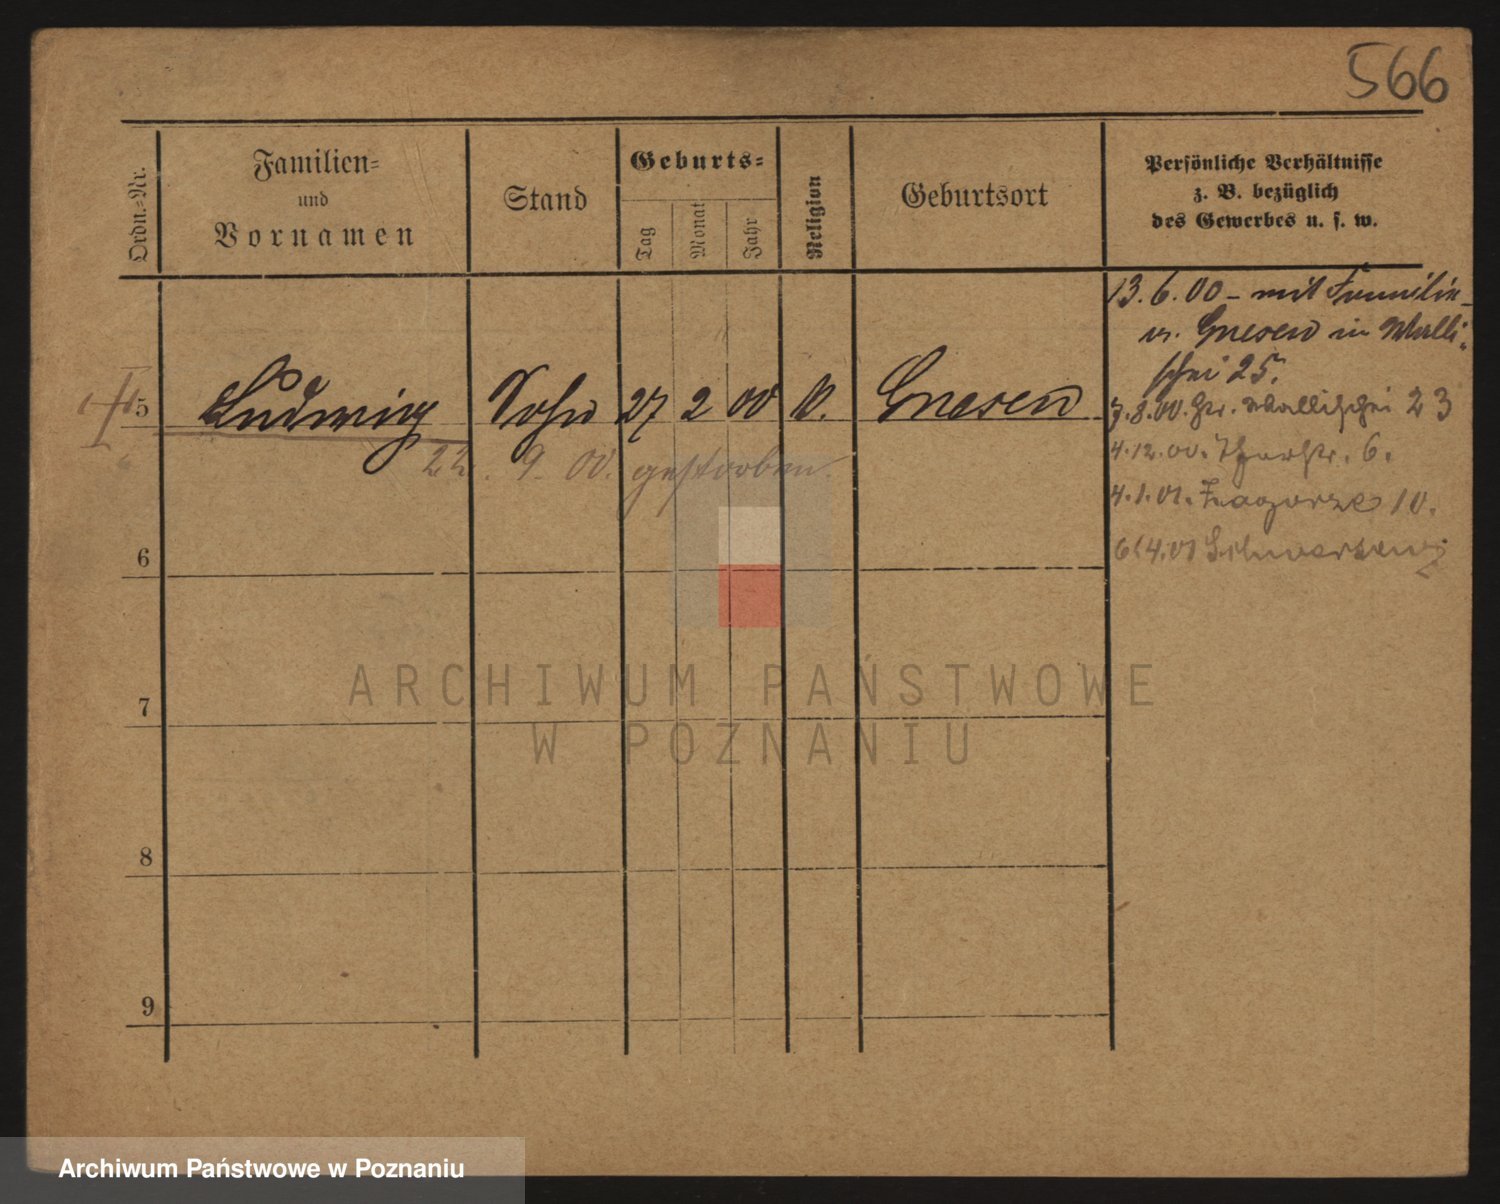 566
Ordn.-Nr.
Familien-
und
Vornamen
Stand
Geburts-
Tag
Monat
Jahr
Religion
Geburtsort
Persönliche Verhältnisse
z. B. bezüglich
des Gewerbes u. s. w.
13.6.00 - mit Familie
v. Gnesen in Walli-
schei 25.
5 Ludwig Sohn 27 2 00 Gnesen
7.8.00. Gr. Wallischei 23
22. 9. 00. gestorben.
4.12.00. 6.
4.1.01. Zagorze 10.
6 6/4.01 Schwersenz
7
8
9
ARCHIWUM PAŃSTWOWE
W POZNANIU
Archiwum Państwowe w Poznaniu